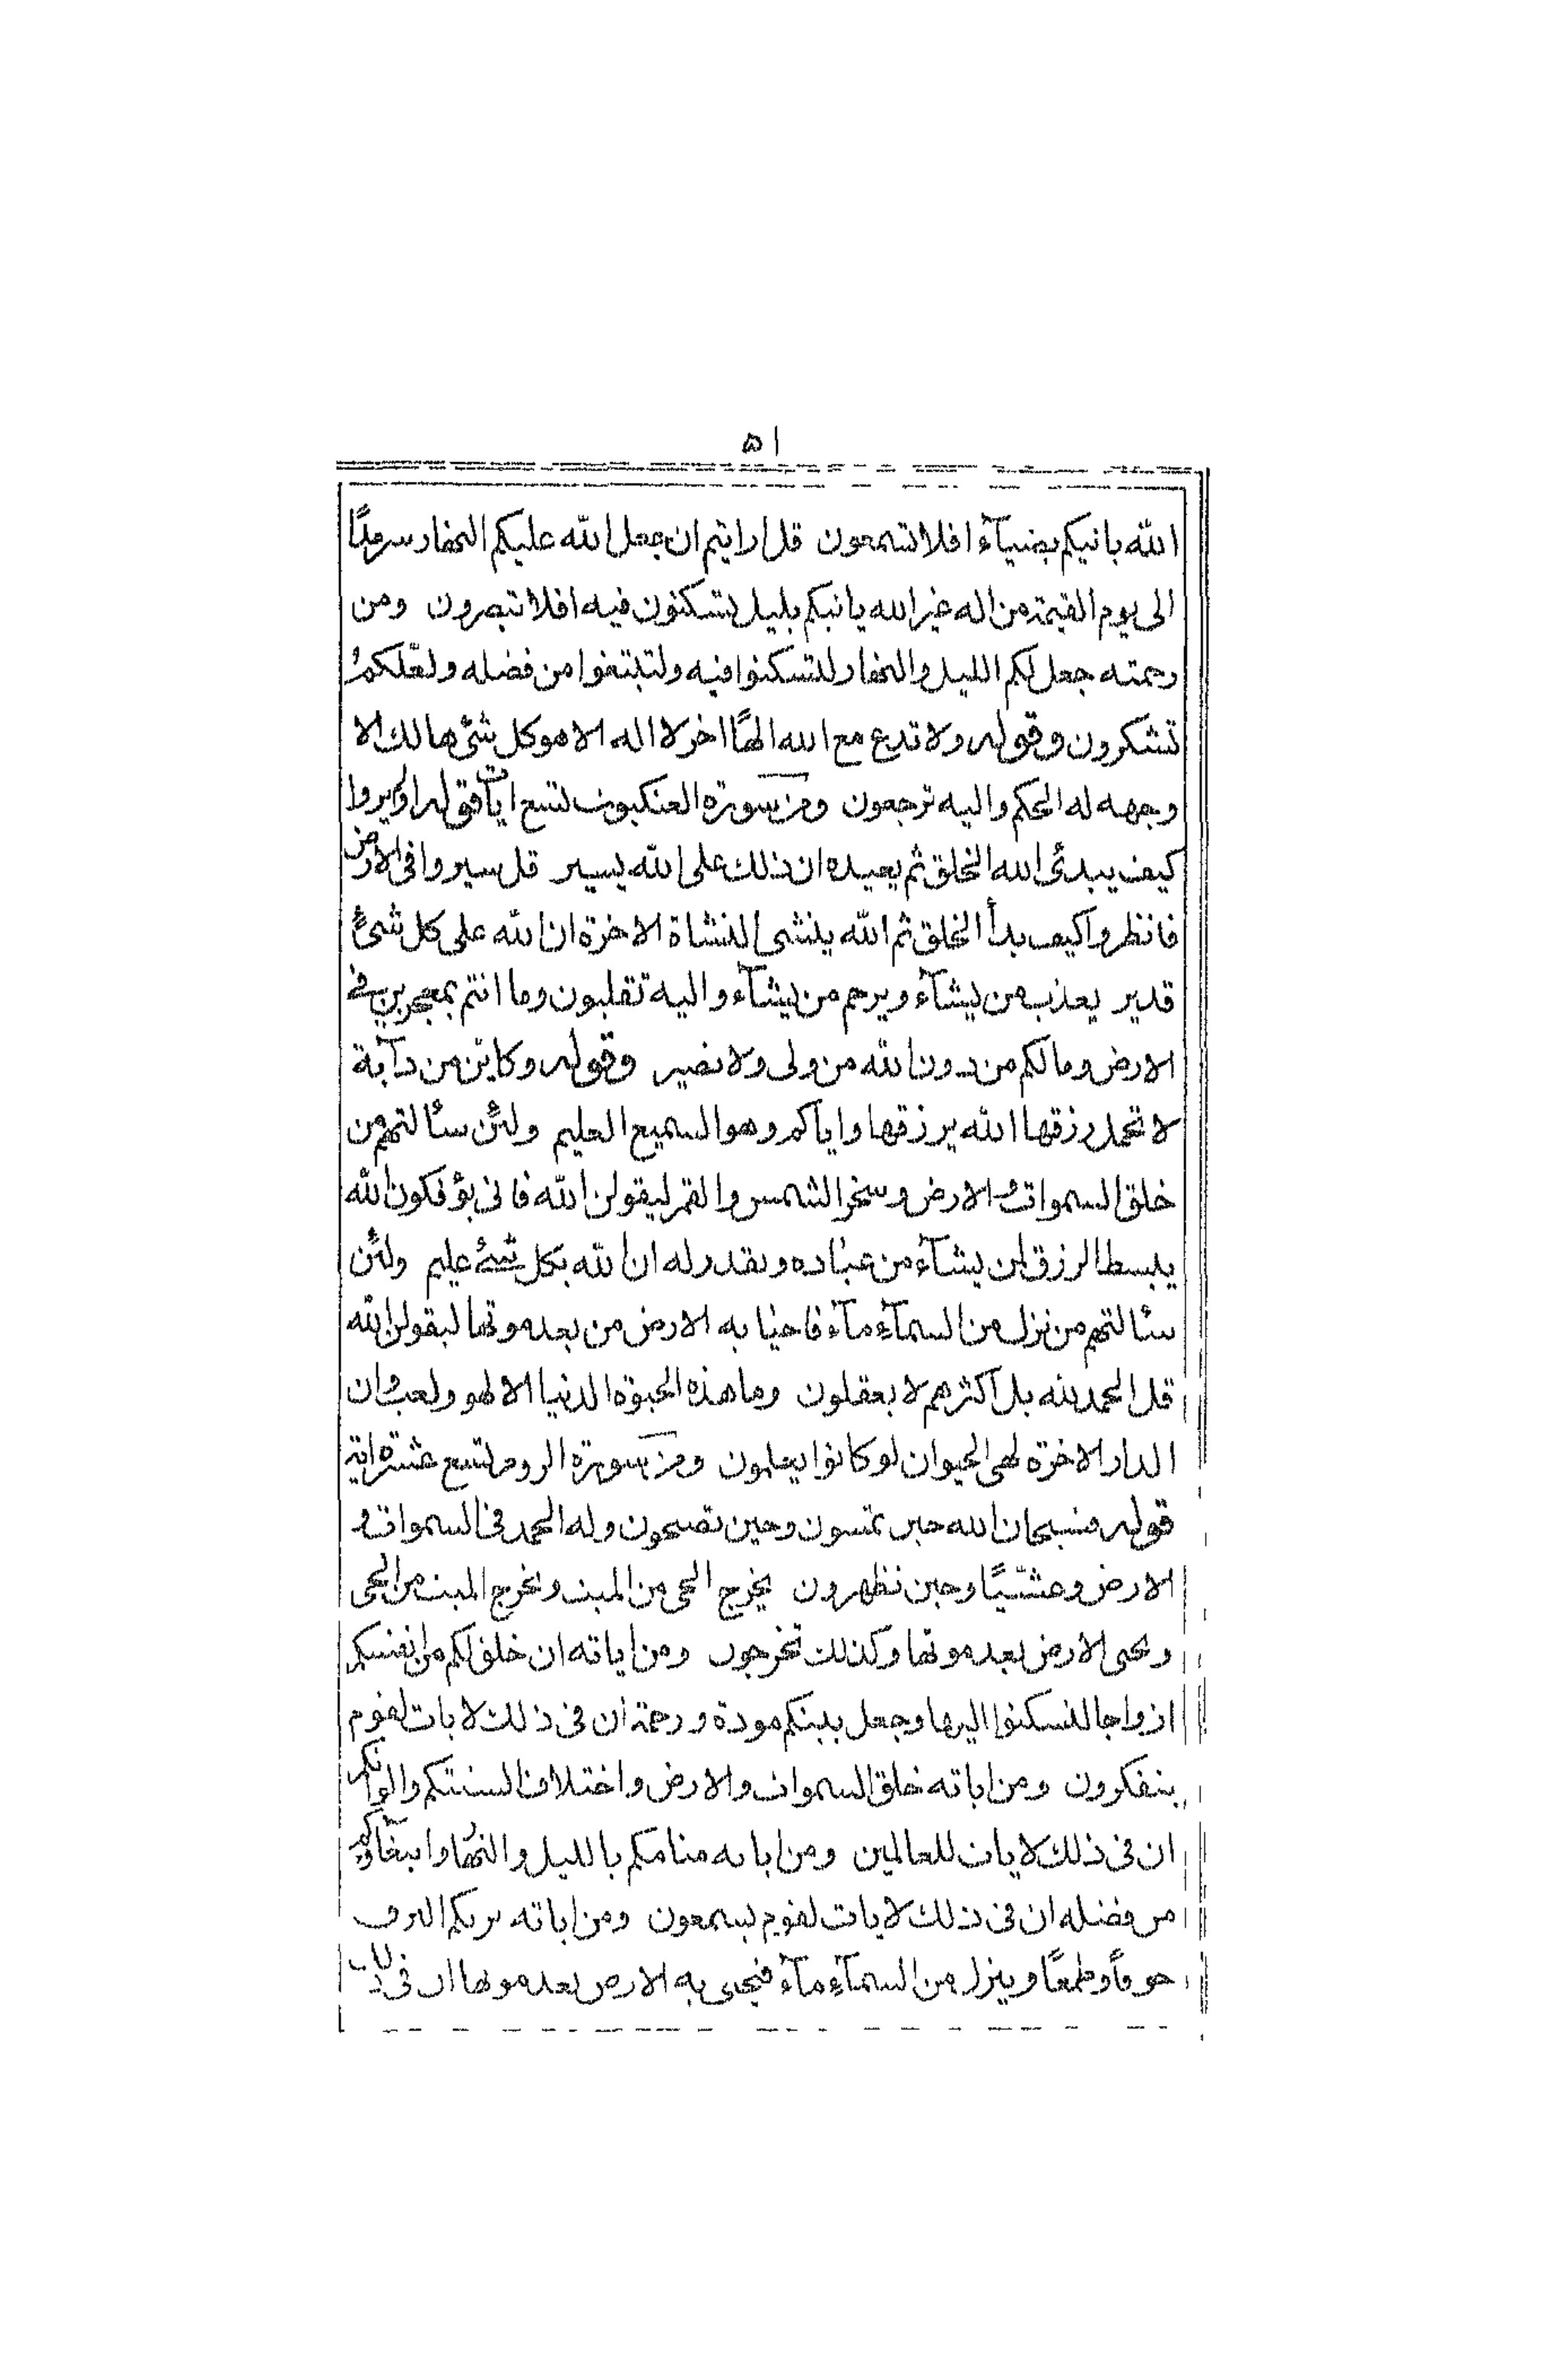 ٥١
الله یاتیکم بضیآء افلا تسمعون قل ارایتم ان جعل الله علیکم النهار سرمدًا
الی یوم القیمة من اله غیر الله یاتیکم بلیل تسکنون فیه افلا تبصرون ومن
رحمته جعل لکم اللیل والنهار لتسکنوا فیه ولتبتغوا من فضله ولعلّکم
تشکرون وقوله ولا تدع مع الله الهًا اخر لا اله الا هو کل شئ هالك الا
وجهه له الحکم والیه ترجعون ومن سورة العنکبوت لتسع ایات قوله اولم یروا
کیف یبدئ الله الخلق ثم یعیده ان ذلك علی الله یسیر قل سیروا فی الارض
فانظروا کیف بدأ الخلق ثم الله ینشی النشاة الاخرة ان الله علی کل شئ
قدیر یعذب من یشآء ویرحم من یشآء والیه تقلبون وما انتم بمعجزین فی
الارض وما لکم من دون الله من ولی ولا نصیر وقوله وکاین من دآبة
لا تحمل رزقها الله یرزقها وایاکم وهو السمیع العلیم ولئن سئالتهم من
خلق السموات والارض وسخر الشمس والقمر لیقولن الله فانی یؤفکون الله
یبسط الرزق لمن یشآء من عباده ویقدر له ان الله بکل شئ علیم ولئن
سئالتهم من نزل من السمآء مآء فاحیا به الارض من بعد موتها لیقولن الله
قل الحمد لله بل اکثرهم لا یعقلون وما هذه الحیوة الدنیا الا لهو ولعب وان
الدار الاخرة لهی الحیوان لو کانوا یعلمون ومن سورة الروم تسع عشرة ایة
قوله فسبحان الله حین تمسون وحین تصبحون وله الحمد فی السموات و
الارض وعشیًا وحین تظهرون یخرج الحی من المیت ویخرج المیت من الحی
ویحیی الارض بعد موتها وکذلك تخرجون ومن ایاته ان خلق لکم من انفسکم
ازواجا لتسکنوا الیها وجعل بینکم مودة ورحمة ان فی ذلك لایات لقوم
یتفکرون ومن ایاته خلق السموات والارض واختلاف السنتکم والوانکم
ان فی ذلك لایات للعالمین ومن ایاته منامکم باللیل والنهار وابتغآؤکم
من فضله ان فی ذلك لایات لقوم یسمعون ومن ایاته یریکم البرق
خوفاً وطمعًا وینزل من السمآء مآء فیحیی به الارض بعد موتها ان فی ذلك